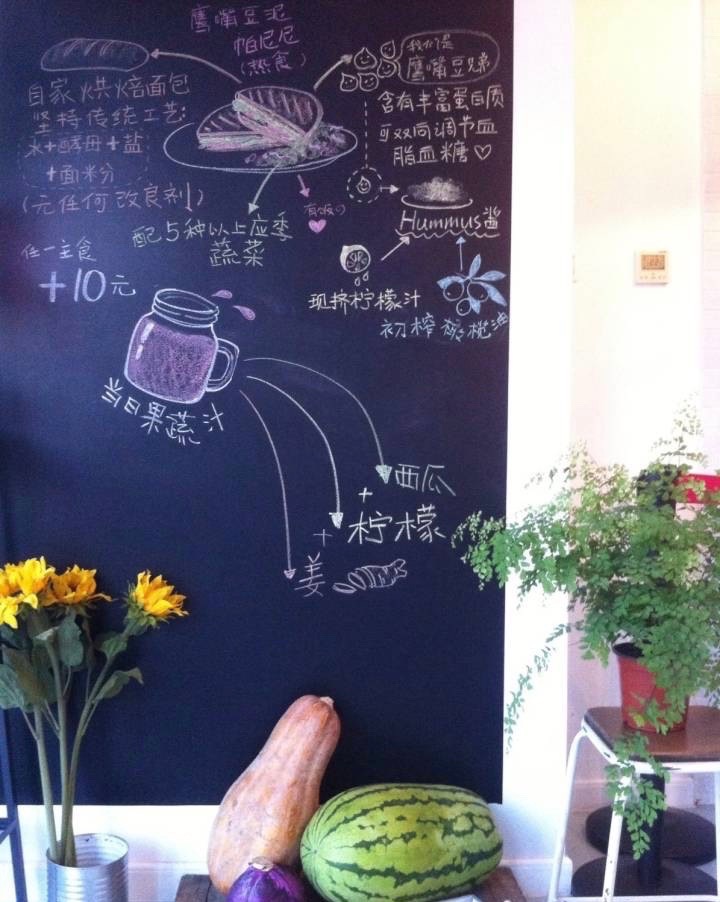 鹰嘴豆泥
帕尼尼
(热食)
自家烘焙面包
坚持传统工艺:
水+酵母+盐
+面粉
(无任何改良剂)
我们是
鹰嘴豆兄弟
含有丰富蛋白质
可双向调节血
脂血糖♡
Hummus酱
现挤柠檬汁
初榨橄榄油
配5种以上应季
蔬菜
任一主食
+10元
当日果蔬汁
西瓜
+
柠檬
+
姜